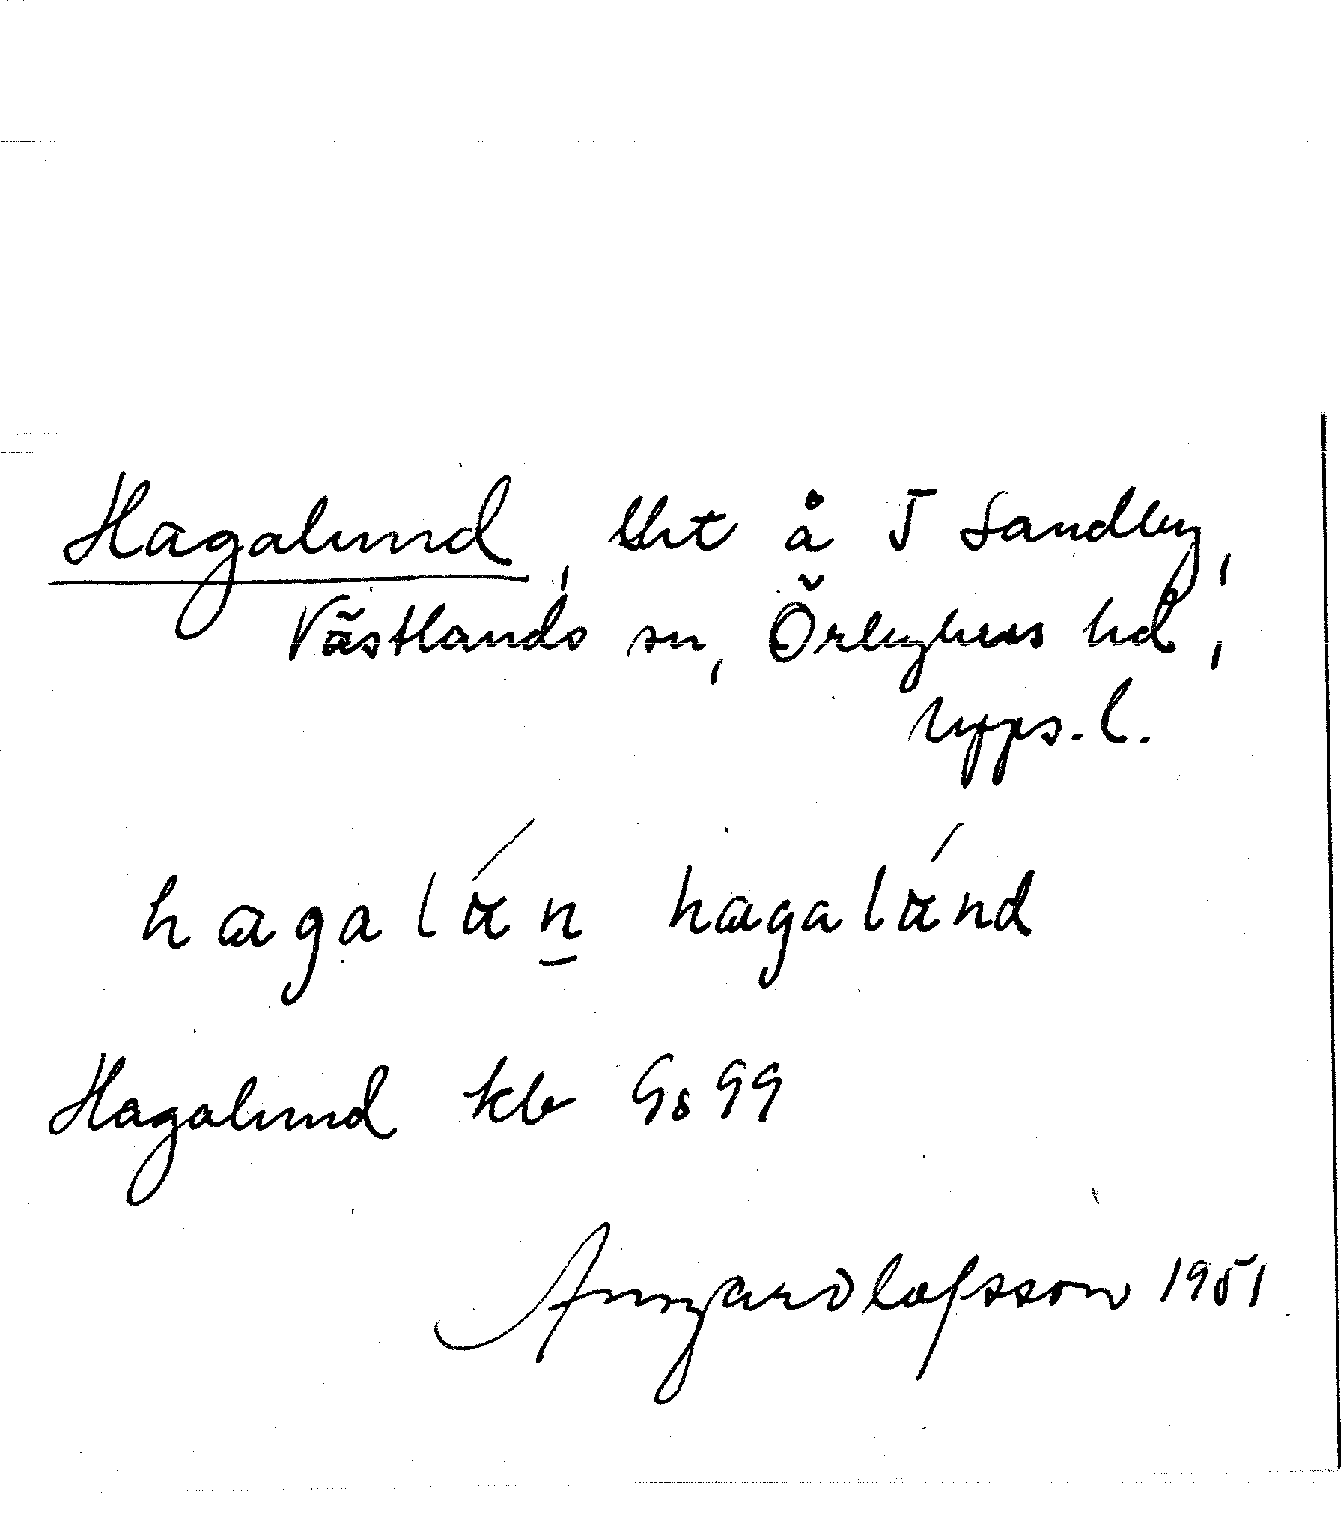 Hagalund, lht å J Sandby,
Västlands sn, Örbyhus hd,
Upps. l.
hagalán hagalánd
Hagalund kb Gs 99
Ansgar Olofsson 1951